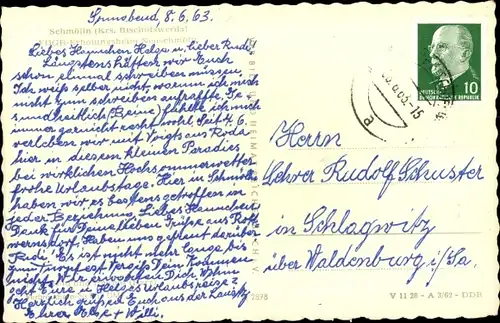 Sonnabend 8.6.63.
Schmölln (Krs. Bischofswerda)
Liebes Hannchen Helga u. lieber Rudi!
Längstens hätten wir Euch
schon einmal schreiben müssen.
Ich weiß selber nicht, warum ich mich
nicht zum schreiben aufraffte. Ge-
sundheitlich (Beine) fühlte ich mich
immer gar nicht recht wohl. Seit 4.6.
verleben wir mit Voigts aus Roda
hier in diesem kleinen Paradies
bei wirklichen Hochsommerwetter
frohe Urlaubstage. Hier in Schmölln
haben wir es bestens getroffen in
jeder Beziehung. Liebes Hannchen!
Dank für Deine lieben Grüße aus Roth
wernsdorf. Haben uns gefreut darüber
Rudi! Es ist nicht mehr lange bis
zum
nicht! Wie
geht Eure u. Helgas Urlaubsreise?
Herzlich grüßen Euch aus der Lausitz
Eure Else + Willi.
10
DEUTSCHE
DEMOKRATISCHE REPUBLIK
a
Herrn
Lehrer Rudolf Schuster
in Schlagwitz
über Waldenburg i/Sa.
V 11 28 - A 2/62 - DDR